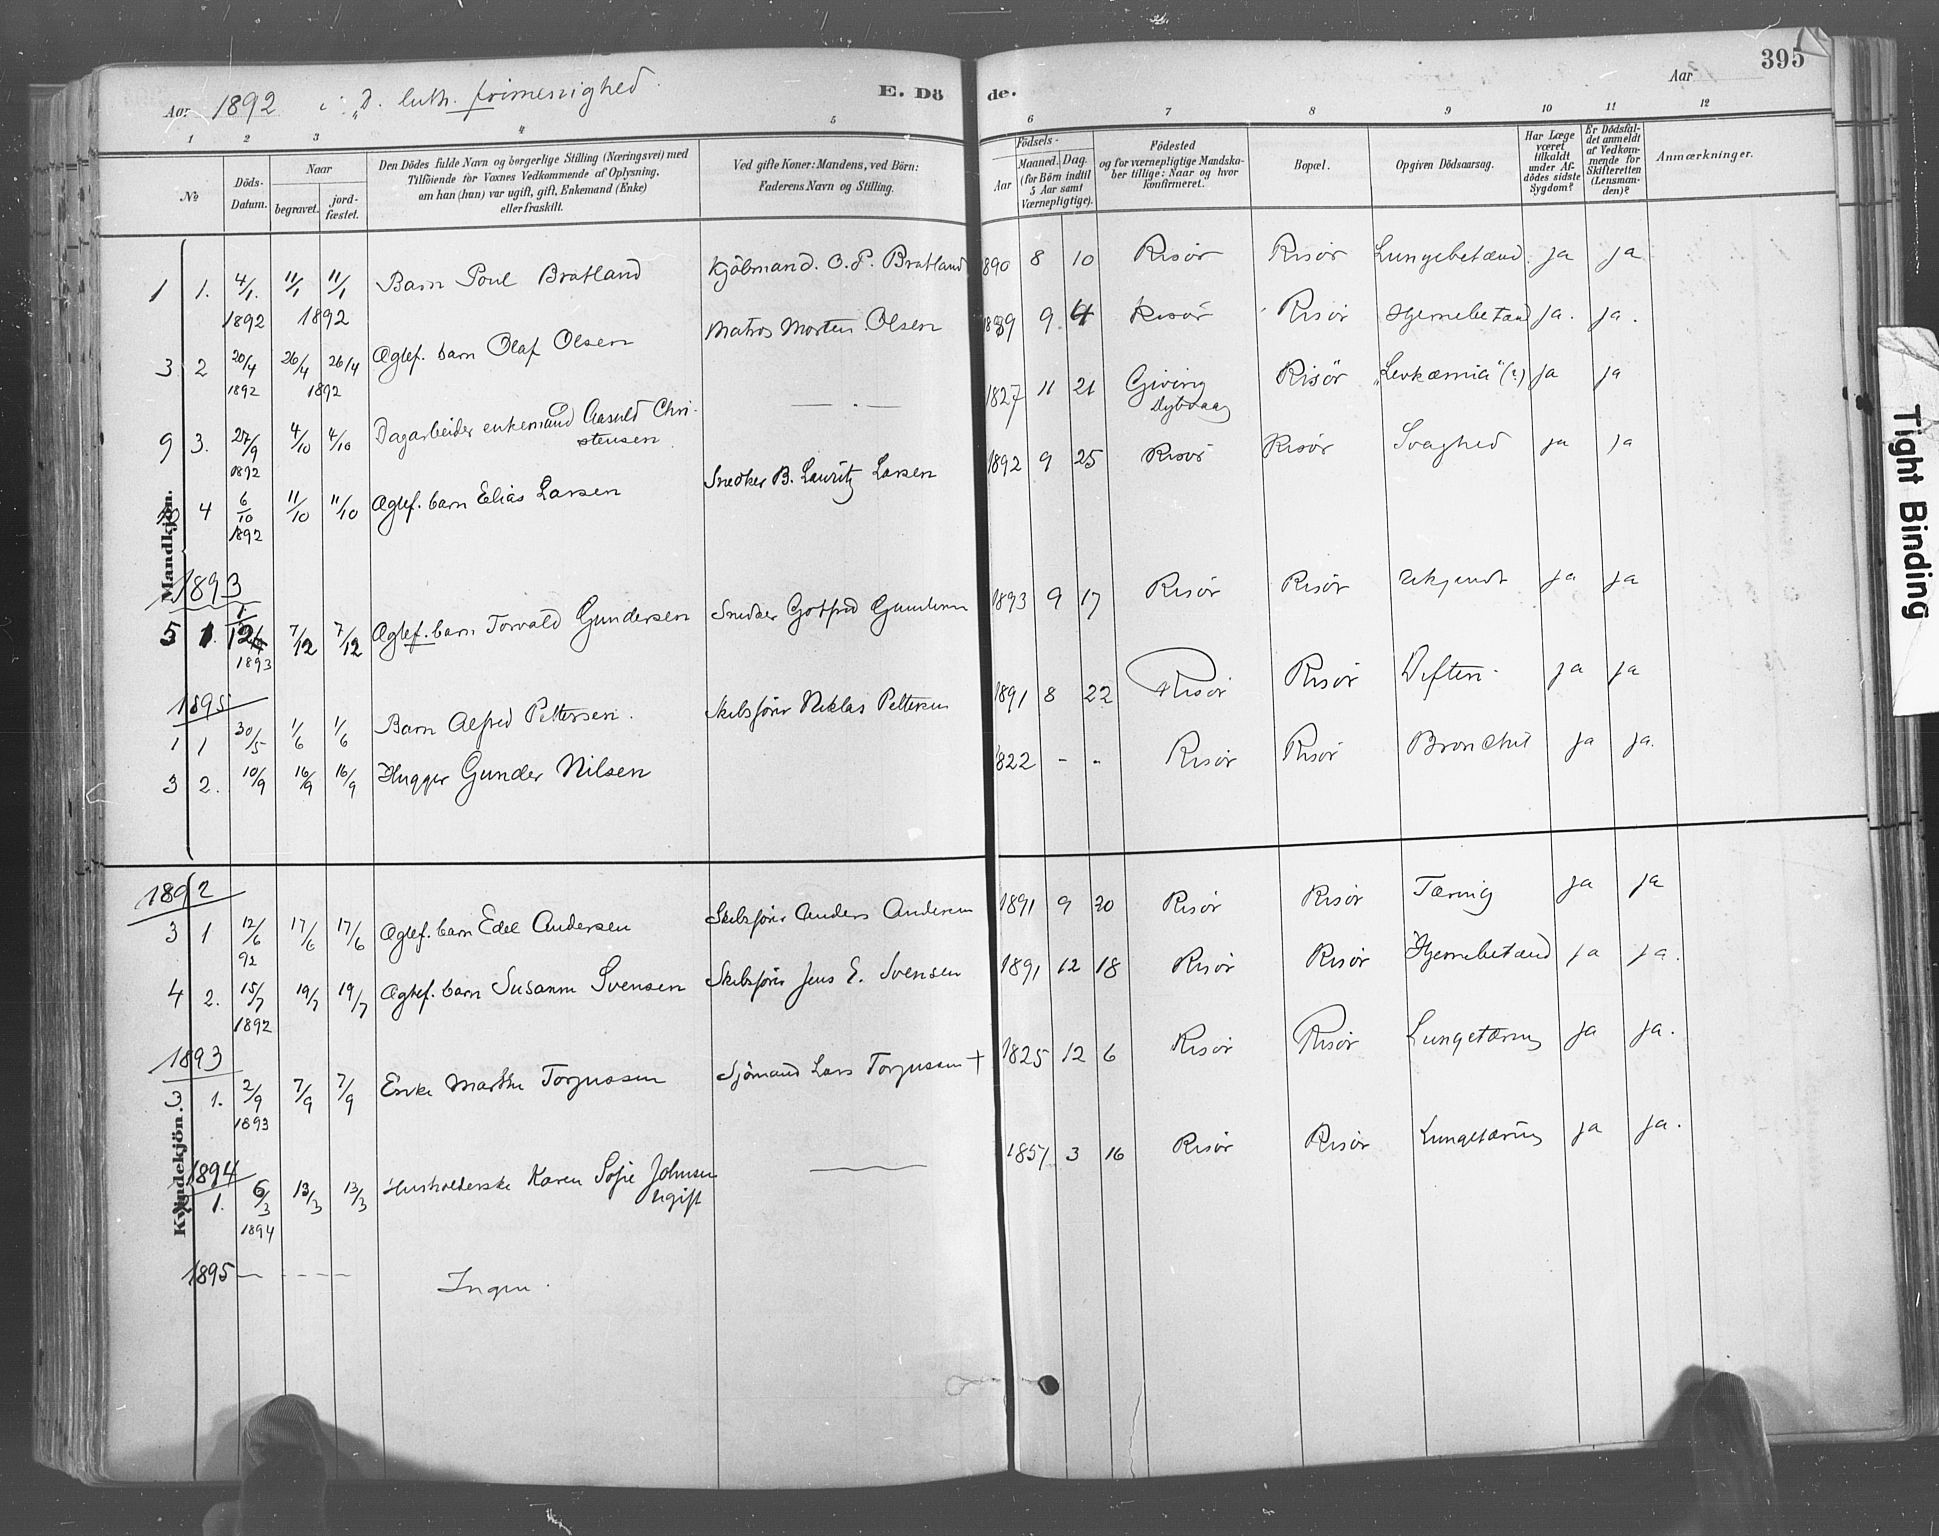 395
Aar 1892 i "D. luth. frimenighed.
E. Dö de.
Aar
1 2 3 4 5 6 7 8 9 10 11 12
№
Döds-Datum.
Naar
begravet.
jord-fæstet.
Den Dödes fulde Navn og borgerlige Stilling (Næringsvei) med
Tilföiende for Voxnes Vedkommende af Oplysning,
om han (hun) var ugift, gift, Enkemand (Enke)
eller fraskilt.
Ved gifte Koner: Mandens, ved Börn:
Faderens Navn og Stilling.
Födsels-
Aar
Maaned. Dag.
(for Börn indtil
5 Aar samt
Værnepligtige).
Födested
og for værnepligtige Mandska-
ber tillige: Naar og hvor
konfirmeret.
Bopæl.
Opgiven Dödsaarsag.
Har Læge
været
tilkaldt
under Af-
dödes sidste
Sygdom?
Er Dödsfal-
det anmeldt
af Vedkom-
mende for
Skifteretten
(Lensman-
den)?
Anmærkninger.
Mandkjön.
1 1. 4/1. 11/1 11/1 Barn Poul Bratland Kjöbmand. O. P. Bratland 1890 8 10 Risör Risör Lungebetænd. ja ja
1892 1892
3. 2 20/4 26/4 26/4 Ægtef. barn Olaf Olsen Matros Morten Olsen 1889 9. 4 Risör Risör Hjernebetænd ja. ja.
1892 1892
9 3. 27/9 4/10 4/10 Dagarbeider enkemand Aasuld Chri- — . — 1827 11 21 Giving Risör "Levkæmia" (?) ja ja
stensen Dybvaag
1892
4 6/10 11/10 11/10 Ægtef. barn Elias Larsen Snedker B. Lauritz Larsen 1892 9 25 Risör Risör Svaghed ja ja
1892
1893
5 1. 1/12 7/12 7/12 Ægtef. barn Torvald Gundersen Snedker Gotfred Gundersen 1893 9 17 Risör Risör Ukjendt ja ja
1893
1895
1 1 30/5 1/6 1/6 Barn Alfred Pettersen. Skibsförer Niklas Pettersen 1891 8 22 Risör Risör Difteri ja ja
3 2. 10/9 16/9 16/9 Hugger Gunder Nilsen 1822 - - Risör Risör Bronchit ja ja.
Kvindekjön.
1892
3 1 12/6 17/6 17/6 Ægtef. barn Edel Andersen Skibsförer Anders Andersen 1891 9 20 Risör Risör Tæring ja ja
92
4 2. 15/7 19/7 19/7 Ægtef. barn Susanne Svensen Skibsförer Jens E. Svensen 1891 12 18 Risör Risör Hjernebetænd ja ja.
1892
1893
3 1. 2/9 7/9 7/9 Enke Marthe Torjussen Sjömand Lars Torjussen + 1825 12 6 Risör Risör Lungetæring ja ja.
1893
1894
1. 6/3 13/3 13/3 Husholderske Karen Sofie Johnsen 1857 3 16 Risör Risör Lungetæring ja ja.
ugift
1894
1895 — - - - - Ingen.
Tight Binding